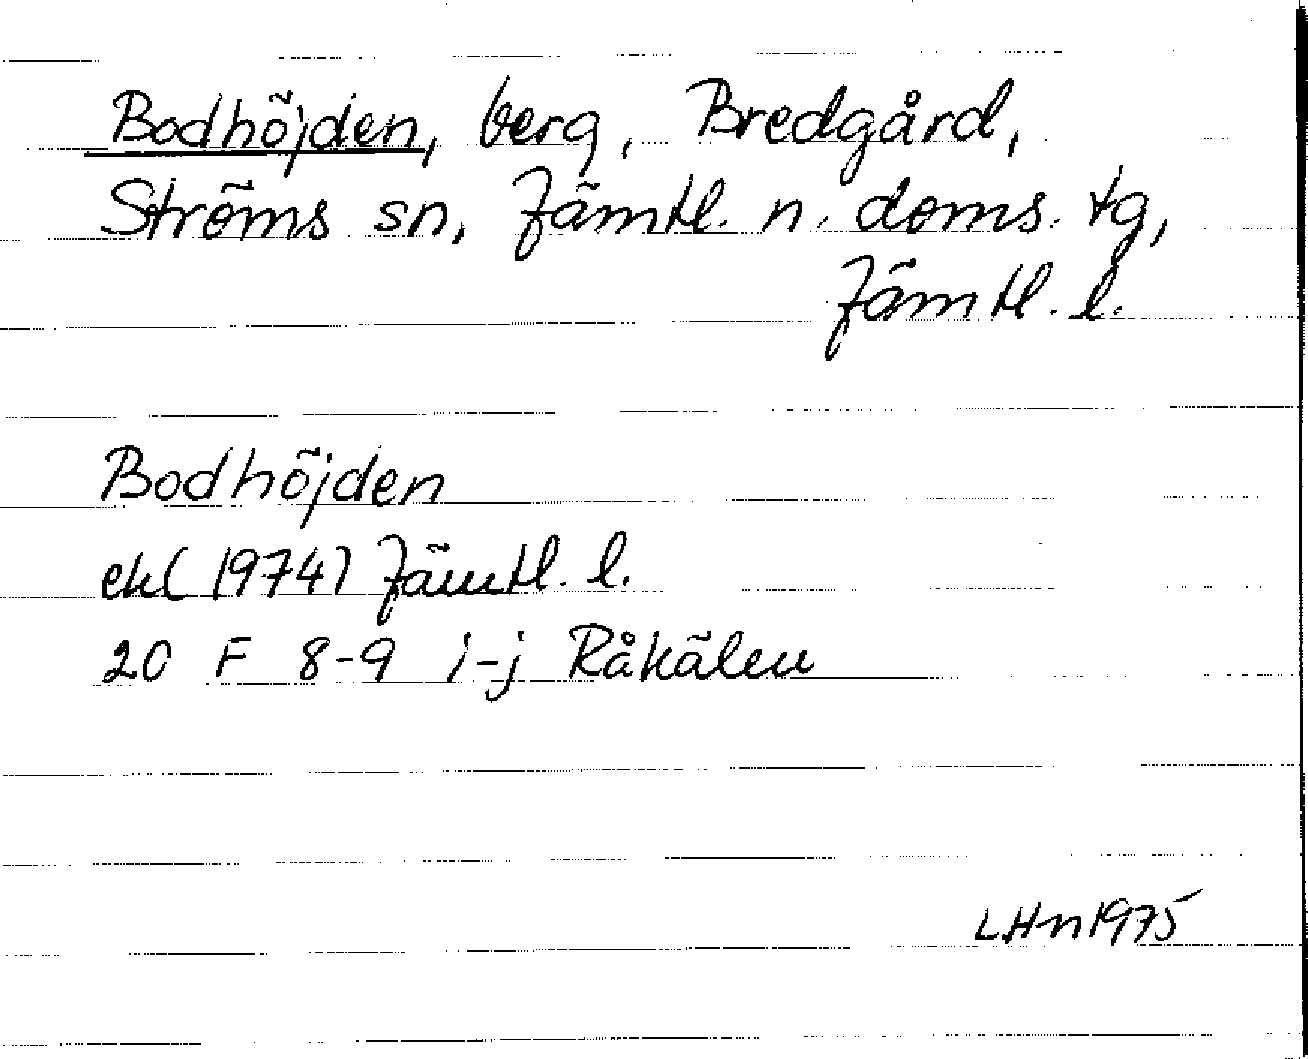 Bodhöjden, berg, Bredgård,
Ströms sn, Jämtl. n. doms. tg,
Jämtl. l.
Bodhöjden
ekl (1974) Jämtl. l.
20 F 8-9 i-j Råkälen
LHn 1975